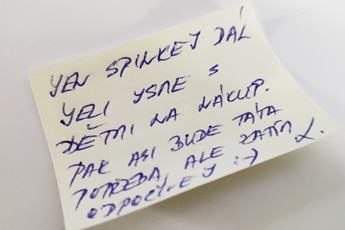 YEN SPINKEY DÁL
YELI YSME S
DĚTMI NA NÁKUP.
PAK ASI BUDE TÁTA
POTŘEBA, ALE ZATÍM
ODPOČÍVEY :-) L.